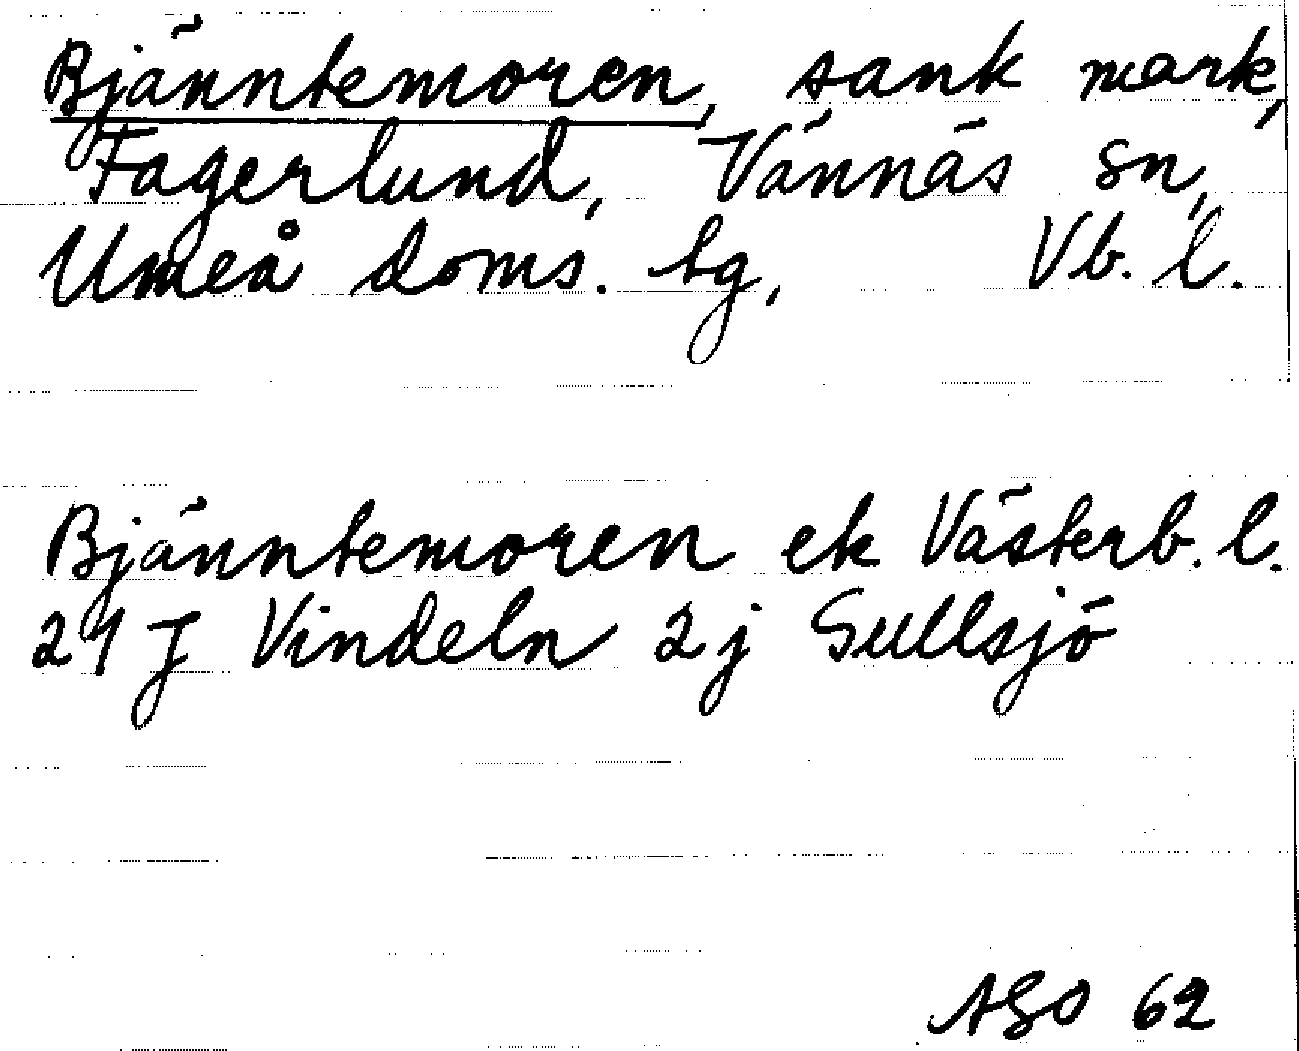 Bjänntemoren, sank mark,
Fagerlund, Vännäs sn,
Umeå doms. tg, Vb. l.
Bjänntemoren ek Västerb. l.
21 J Vindeln 2j Sullsjö
ASO 62